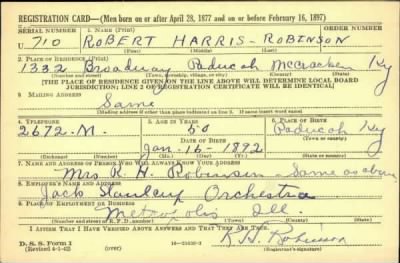 REGISTRATION CARD—(Men born on or after April 28, 1877 and on or before February 16, 1897)
SERIAL NUMBER 1. NAME (Print)
U 710 ROBERT HARRIS - ROBINSON
(First) (Middle) (Last)
2. PLACE OF RESIDENCE (Print)
1332 Broadway Paducah McCracken Ky
(Number and street) (Town, township, village, or city) (County) (State)
[THE PLACE OF RESIDENCE GIVEN ON THE LINE ABOVE WILL DETERMINE LOCAL BOARD
JURISDICTION; LINE 2 OF REGISTRATION CERTIFICATE WILL BE IDENTICAL]
3. MAILING ADDRESS
Same
[Mailing address if other than place indicated on line 2. If same insert word same]
4. TELEPHONE 5. AGE IN YEARS 6. PLACE OF BIRTH
2672-M. 50 Paducah
DATE OF BIRTH (Town or county)
Jan. 16 - 1892 Ky
(Exchange) (Number) (Mo.) (Day) (Yr.) (State or country)
7. NAME AND ADDRESS OF PERSON WHO WILL ALWAYS KNOW YOUR ADDRESS
Mrs R. H. Robinson - Same as above
8. EMPLOYER'S NAME AND ADDRESS
Jack Orchestra
9. PLACE OF EMPLOYMENT OR BUSINESS
Metropolis Ill.
(Number and street or R. F. D. number) (Town) (County) (State)
I AFFIRM THAT I HAVE VERIFIED ABOVE ANSWERS AND THAT THEY ARE TRUE.
R. H. Robinson
D. S. S. Form 1
(Revised 4-1-42) (over) (Registrant's signature)